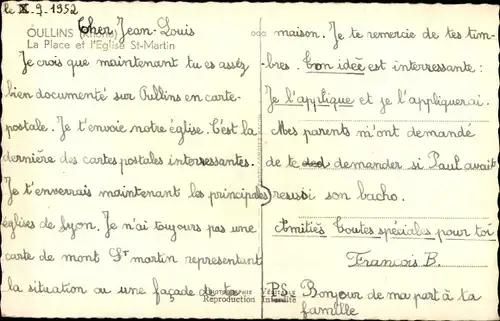 le X-9-1952
Cher Jean-Louis
OULLINS (Rhône)
La Place et l'Eglise St-Martin
Je crois que maintenant tu es assez
bien documenté sur Oullins en carte-
postale. Je t'envoie notre église. C'est la
dernière des cartes postales interessantes.
Je t'enverrais maintenant les principales
églises de Lyon. Je n'ai toujours pas une
carte de mont St martin representant
la situation ou une façade de ta
Reproduction Interdite
maison. Je te remercie de tes tim-
bres. Ton idée est interessante :
Je l'applique et je l'appliquerai.
Mes parents m'ont demandé
de te demander si Paul avait
reussi son bacho.
Amitiés toutes spéciales pour toi
Francois B.
PS. Bonjour de ma part à ta
famille